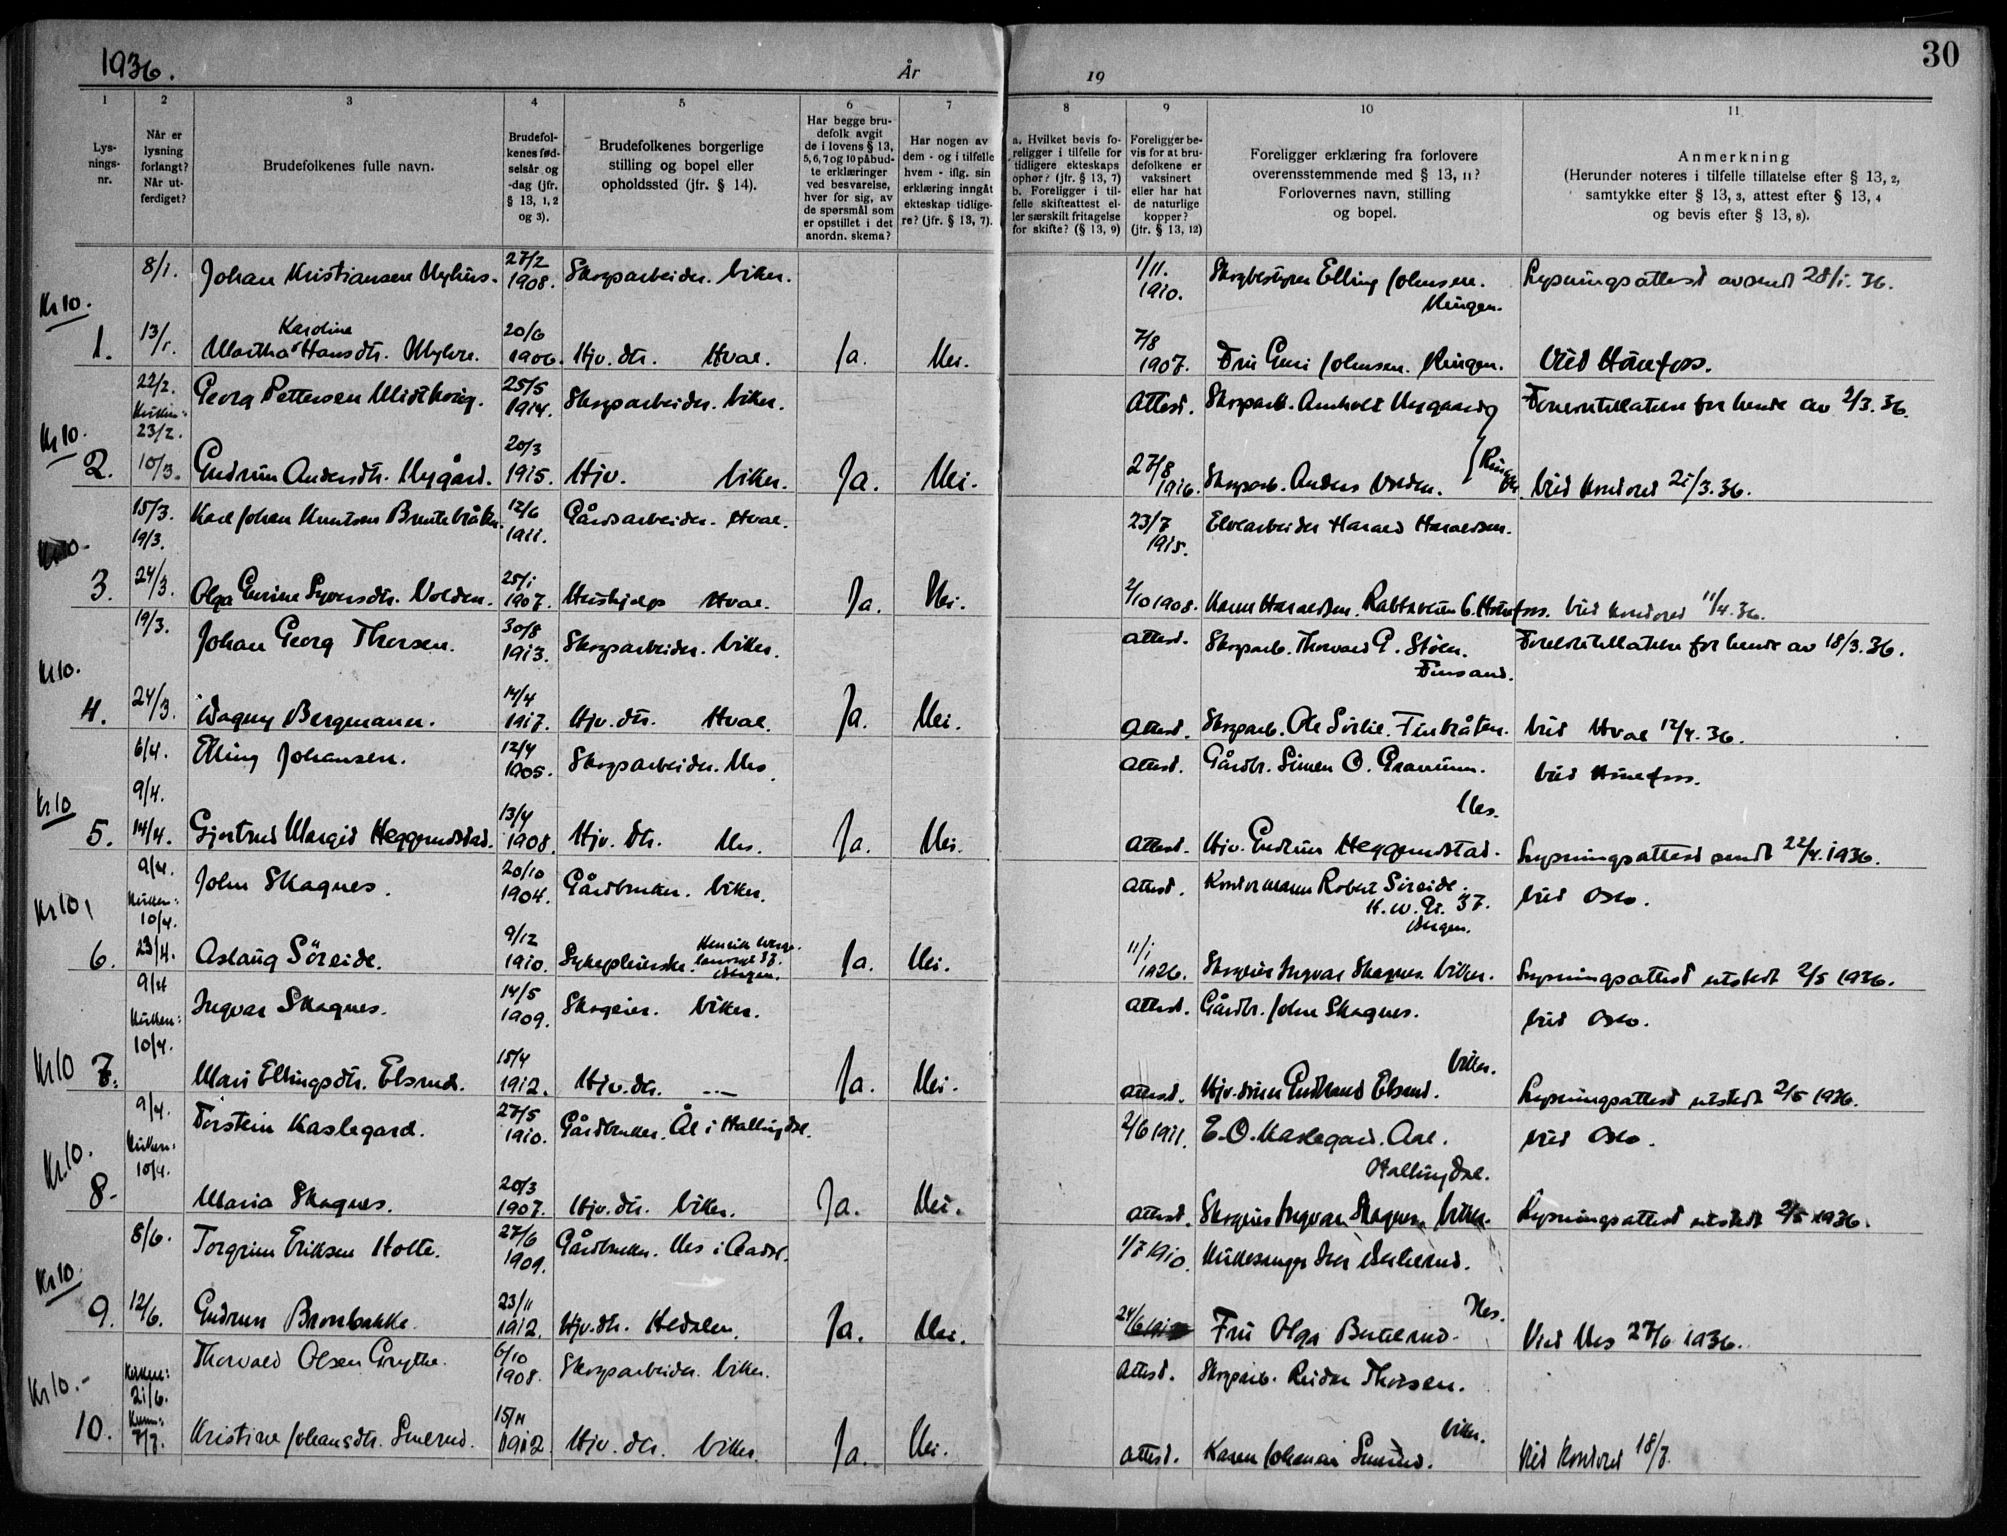 1936.
År
19
30
1
2
3
4
5
6
7
8
9
10
11
Lys-
nings-
nr.
Når er
lysning
forlangt?
Når ut-
ferdiget?
Brudefolkenes fulle navn.
Brudefol-
kenes fød-
selsår og
-dag (jfr.
§ 13, 1, 2
og 3).
Brudefolkenes borgerlige
stilling og bopel eller
opholdssted (jfr. § 14).
Har begge bru-
defolk avgit
de i lovens § 13,
5, 6, 7 og 10 påbud-
te erklæringer
ved besvarelse,
hver for sig, av
de spørsmål som
er opstillet i det
anordn. skema?
Har nogen av
dem - og i tilfelle
hvem - iflg. sin
erklæring inngåt
ekteskap tidlige-
re? (jfr. § 13, 7).
a. Hvilket bevis fo-
religger i tilfelle for
tidligere ekteskaps
ophør? (jfr. § 13, 7)
b. Foreligger i til-
felle skifteattest el-
ler særskilt fritagelse
for skifte? (§ 13, 9)
Foreligger be-
vis for at bru-
defolkene er
vaksinert
eller har hat
de naturlige
kopper?
(jfr. § 13, 12)
Foreligger erklæring fra forlovere
overensstemmende med § 13, 11?
Forlovernes navn, stilling
og bopel.
Anmerkning
(Herunder noteres i tilfelle tillatelse efter § 13, 2,
samtykke efter § 13, 3, attest efter § 13, 4
og bevis efter § 13, 8).
8/1. Johan Kristiansen Myhre. 27/2 1908. Skogsarbeider. Viker. 1/11. 1910. Skogbestyrer Elling Johnsen. Ringen. Lysningsattest avsendt 28/1. 36.
Kr 10.
1. 13/1. Martha Karoline Hansdtr. Myhre. 20/6 1906. Hjv. dtr. Hval. Ja. Nei. 7/8 1907. Fru Guri Johnsen. Ringen. Viet Hönefoss.
22/2. Georg Pettersen Midthaug. 25/5 1914. Skogsarbeider. Viker. Attest. Skogsarb. Arnholt Nygaard Foreldretillatelse for hende av 2/3. 36.
Kirken: 23/2.
Kr 10.
2. 10/3. Gudrun Andersdtr. Nygård. 20/3 1915. Hjv. Viker. Ja. Nei. 27/8 1916. Skogsarb. Anders Volden. Viet kontoret 21/3. 36.
15/3. Karl Johan Knutsen Brutebråten. 12/6 1911. Gårdsarbeider. Hval. 23/7 1915. Elvearbeider Harald Haraldsen.
19/3.
Kr 10.-
3. 24/3. Olga Gurine Syversdtr. Volden. 25/1 1907. Hushjelp Hval. Ja. Nei. 2/10 1908. Karen Haraldsen. Hönefoss. Viet kontoret 11/4. 36.
19/3. Johan Georg Thorsen. 30/8 1913. Skogsarbeider. Viker. attest. Skogsarb. Thorvald P. Stölen. Finsand. Foreldretillatelse for hende av 18/3. 36.
Kr 10.
4. 24/3. Dagny Bergmann. 14/4 1917. Hjv. dtr. Hval. Ja. Nei. Attest. Skogsarb. Ole Sörlie. Finbråten. Viet Hval 12/4. 36.
6/4. Elling Johansen. 12/4 1905. Skogsarbeider. Nes. attest. Gårdbr. Simen O. Granum. Nes. Viet Hönefoss.
9/4.
Kr 10
5. 14/4. Gjertrud Margit Heggenstad. 13/4 1908. Hjv. dtr. Nes. Ja. Nei. attest. Hjv. Gudrun Heggenstad. Lysningsattest sendt 22/4. 1936.
9/4. John Skagnes. 20/10 1904. Gårdbruker. Viker. attest. Kontormann Robert Söreide. H. W. Gt. 37. Bergen. Viet Oslo.
Kirken: 10/4.
Kr 10,
6. 23/4. Aslaug Söreide. 9/12 1910. Sykepleierske. Henrik Werge- landsgt. 37. Bergen. Ja. Nei. 11/1 1926. Skogeier Ingvar Skagnes. Viker. Lysningsattest utstedt 2/5 1936.
9/4 Ingvar Skagnes. 14/5 1909. Skogeier. Viker. attest. Gårdbr. John Skagnes. Viker. Viet Oslo.
Kirken: 10/4.
Kr 10 7. Mari Ellingsdtr. Elsrud. 15/4 1912. Hjv. dtr. -"- Ja. Nei. attest. Elsrud. Lysningsattest utstedt 2/5 1936.
9/4. Torstein Kaslegard. 27/5 1910. Gårdbruker. Ål i Hallingdal. 2/6 1911. E. O. Kaslegard. Aal. Hallingdal. Viet Oslo.
Kirken: 10/4.
Kr 10.
8. Maria Skagnes. 20/3 1907. Hjv. dtr. Viker. Ja. Nei. attest. Skogeier Ingvar Skagnes. Viker. Lysningsattest utstedt 2/5 1936.
8/6. Torgrim Eriksen Holte. 27/6 1909. Gårdbruker. Nes i Aadal. 1/7 1910. Kirkesanger Iver Bertelrud. Nes.
Kr 10.
9. 12/6. Gudrun Bronbakke. 23/11 1912. Hjv. dtr. Hedalen. Ja. Nei. Fru Olga Bertelrud. Viet Nes 27/6 1936.
Thorvald Olsen Grythe. 6/10 1908. Skogsarbeider. Viker. Attest. Skogsarb. Reidar Thorsen. Viker.
Kirken: 21/6.
Kr 10.-
10. 7/7. Kristine Johansdtr. Smerud. 15/11 1912. Hjv. dtr. Viker. Ja. Nei. attest. Karen Smerud. Viet kontoret 18/7.